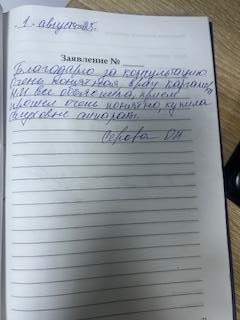 1 август 25.
Заявление № ____
Благодарю за консультацию
очень понятная врач
Н.И. все объяснила, прием
прошел очень понятно, купила
слуховые аппарат.
Серова ОН